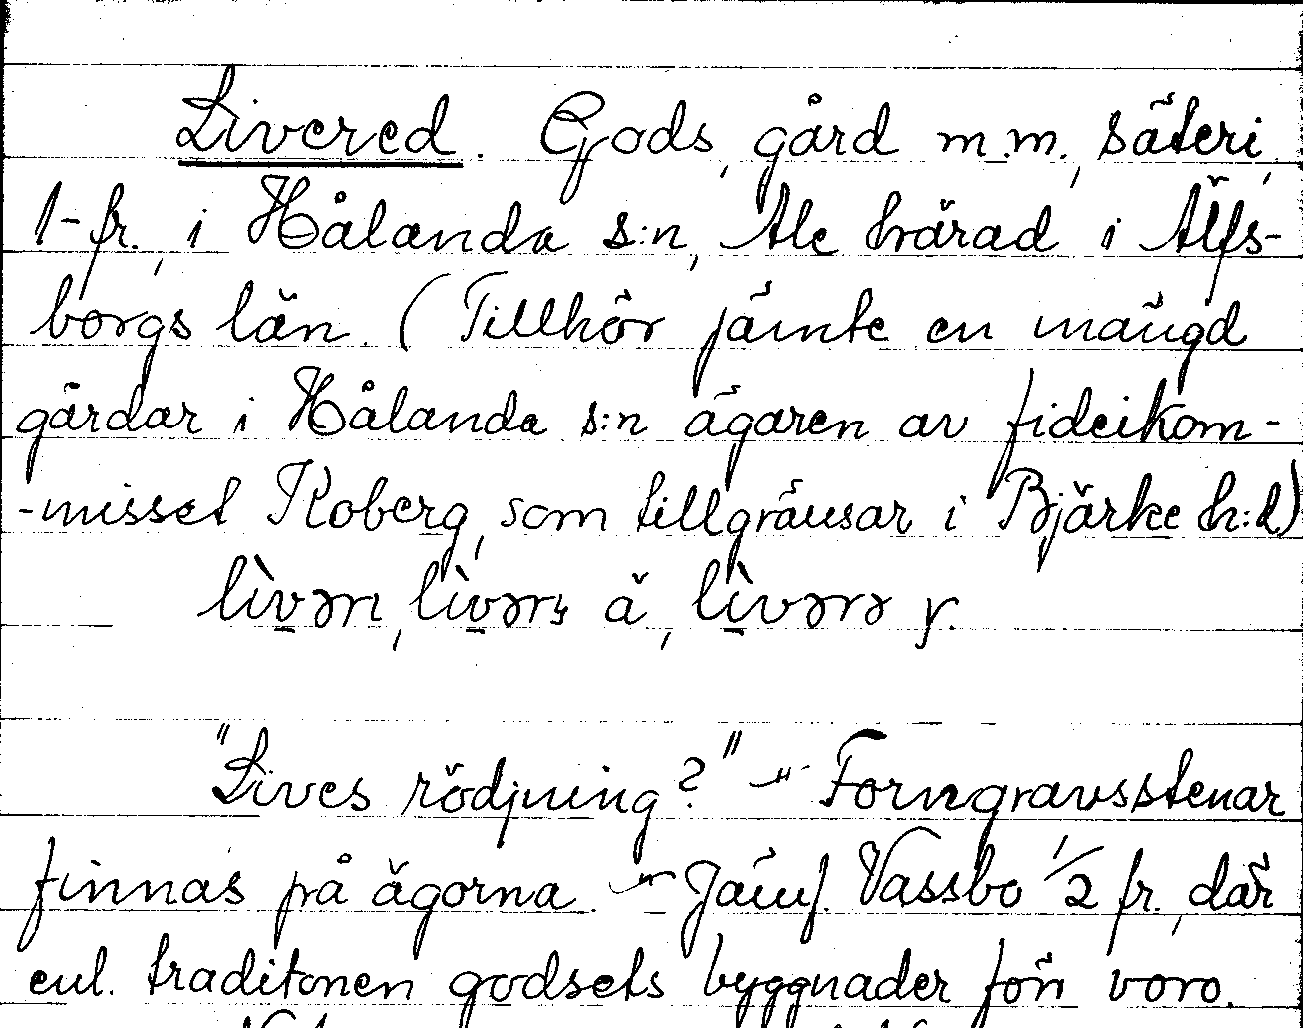 Livered. Gods, gård m.m., säteri,
1-fr., i Hålanda s:n, Ale härad i Älfs-
borgs län. (Tillhör jämte en mängd
gårdar i Hålanda s:n ägaren av fideikom-
-misset Koberg, som tillgränsar i Bjärke h:d)
lìvərn, lìvərs å, lìvərə
"Lives rödjning?" — Forngravsstenar
finnas på ägorna. — Jämf. Vassbo 1/2 fr., där
enl. traditonen godsets byggnader förr voro.